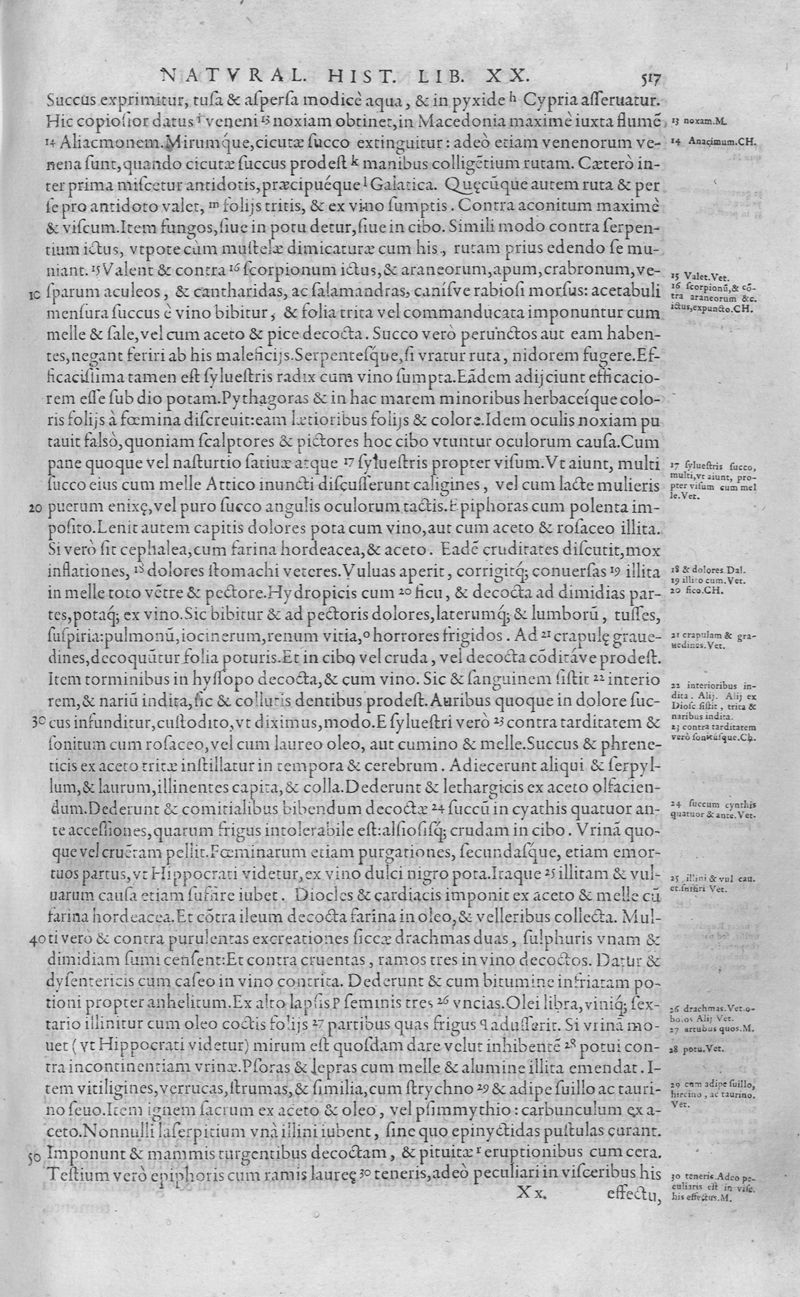 NATVRAL. HIST. LIB. XX. 517
Succus exprimitur, tusa & aspersa modicè aqua, & in pyxide h Cypria asseruatur.
Hic copiosior datus i veneni 13 noxiam obtinet, in Macedonia maximè iuxta flumē
14 Aliacmonem. Mirumq́ue, cicutæ succo extinguitur: adeò etiam venenorum ve-
nena sunt, quando cicutæ succus prodest k manibus colligētium rutam. Cæterò in-
ter prima miscetur antidotis, præcipuéque l Galatica. Quęcūque autem ruta & per
se pro antidoto valet, m folijs tritis, & ex vino sumptis. Contra aconitum maximè
& viscum. Item fungos, siue in potu detur, siue in cibo. Simili modo contra serpen-
tium ictus, vtpote cùm mustelæ dimicaturæ cum his, rutam prius edendo se mu-
niant. 15 Valent & contra 16 scorpionum ictus, & araneorum, apum, crabronum, ve-
10 sparum aculeos, & cantharidas, ac salamandras, canísve rabiosi morsus: acetabuli
mensura succus è vino bibitur, & folia trita vel commanducata imponuntur cum
melle & sale, vel cum aceto & pice decocta. Succo verò perunctos aut eam haben-
tes, negant feriri ab his maleficijs. Serpentesq́ue, si vratur ruta, nidorem fugere. Ef-
ficacissima tamen est syluestris radix cum vino sumpta. Eādem adijciunt efficacio-
rem esse sub dio potam. Pythagoras & in hac marem minoribus herbaceíque colo-
ris folijs à fœmina discreuit: eam lætioribus folijs & colore. Idem oculis noxiam pu
tauit falsò, quoniam scalptores & pictores hoc cibo vtuntur oculorum causa. Cum
pane quoque vel nasturtio satiuæ atque 17 syluestris propter visum. Vt aiunt, multi
succo eius cum melle Attico inuncti discusserunt caligines, vel cum lacte mulieris
20 puerum enixę, vel puro succo angulis oculorum tactis. Epiphoras cum polenta im-
posito. Lenit autem capitis dolores pota cum vino, aut cum aceto & rosaceo illita.
Si verò sit cephalea, cum farina hordeacea, & aceto. Eadē cruditates discutit, mox
inflationes, 18 dolores stomachi veteres. Vuluas aperit, corrigitq́; conuersas 19 illita
in melle toto vētre & pectore. Hydropicis cum 20 ficu, & decocta ad dimidias par-
tes, potaq́; ex vino. Sic bibitur & ad pectoris dolores, laterumq́; & lumborū, tusses,
suspiria: pulmonū, iocinerum, renum vitia, o horrores frigidos. Ad 21 crapulę graue-
dines, decoquūtur folia poturis. Et in cibo vel cruda, vel decocta cōditáve prodest.
Item torminibus in hyssopo decocta, & cum vino. Sic & sanguinem sistit 22 interio
rem, & nariū indita, sic & collutis dentibus prodest. Auribus quoque in dolore suc-
30 cus infunditur, custodito, vt diximus, modo. E syluestri verò 23 contra tarditatem &
sonitum cum rosaceo, vel cum laureo oleo, aut cumino & melle. Succus & phrene-
ticis ex aceto tritæ instillatur in tempora & cerebrum. Adiecerunt aliqui & serpyl-
lum, & laurum, illinentes capita, & colla. Dederunt & lethargicis ex aceto olfacien-
dum. Dederunt & comitialibus bibendum decoctæ 24 succū in cyathis quatuor an-
te accessiones, quarum frigus intolerabile est: alsiosisq́; crudam in cibo. Vrinā quo-
que vel cruētam pellit. Fœminarum etiam purgationes, secundasq́ue, etiam emor-
tuos partus, vt Hippocrati videtur, ex vino dulci nigro pota. Itaque 25 illitam & vul-
uarum causa etiam suffire iubet. Diocles & cardiacis imponit ex aceto & melle cū
farina hordeacea. Et cōtra ileum decocta farina in oleo, & velleribus collecta. Mul-
40 ti verò & contra purulentas excreationes siccæ drachmas duas, sulphuris vnam &
dimidiam sumi censent: Et contra cruentas, ramos tres in vino decoctos. Datur &
dysentericis cum caseo in vino contrita. Dederunt & cum bitumine infriatam po-
tioni propter anhelitum. Ex alto lapsis p seminis tres 26 vncias. Olei libra, viniq́; sex-
tario illinitur cum oleo coctis folijs 27 partibus quas frigus q adusserit. Si vrinā mo-
uet (vt Hippocrati videtur) mirum est quosdam dare velut inhibentē 28 potui con-
tra incontinentiam vrinæ. Psoras & lepras cum melle & alumine illita emendat. I-
tem vitiligines, verrucas, strumas, & similia, cum strychno 29 & adipe suillo ac tauri-
no seuo. Item ignem sacrum ex aceto & oleo, vel psimmythio: carbunculum ex a-
ceto. Nonnulli laserpitium vnà illini iubent, sine quo epinyctidas pustulas curant.
50 Imponunt & mammis turgentibus decoctam, & pituitæ r eruptionibus cum cera.
Testium verò epiphoris cum ramis laureę 30 teneris, adeò peculiari in visceribus his
Xx. effectu,
13 noxam. M.
14 Anacimum. CH.
15 Valet. Vet.
16 scorpionū, & cō-
tra araneorum &c.
ictus, expuncto. CH.
17 syluestris succo,
multi, vt aiunt, pro-
pter visum cum mel
le. Vet.
18 & dolores Dal.
19 illito cum. Vet.
20 fico. CH.
21 crapulam & gra-
uedines. Vet.
22 interioribus in-
dita. Alij. Alij ex
Diosc sistit, trita &
naribus indita.
23 contra tarditatem
verò sonitúsque. Ch.
24 succum cynthis
quatuor & ante. Vet.
25 illini & vul cau.
et suffiri Vet.
26 drachmas. Vet. o-
bolos Alij Vet.
27 artubus quos. M.
28 potu. Vet.
29 cum adipe suillo,
hircino, ac taurino.
Vet.
30 teneris. Adeo pe-
culiaris est in visc.
his effectus. M.